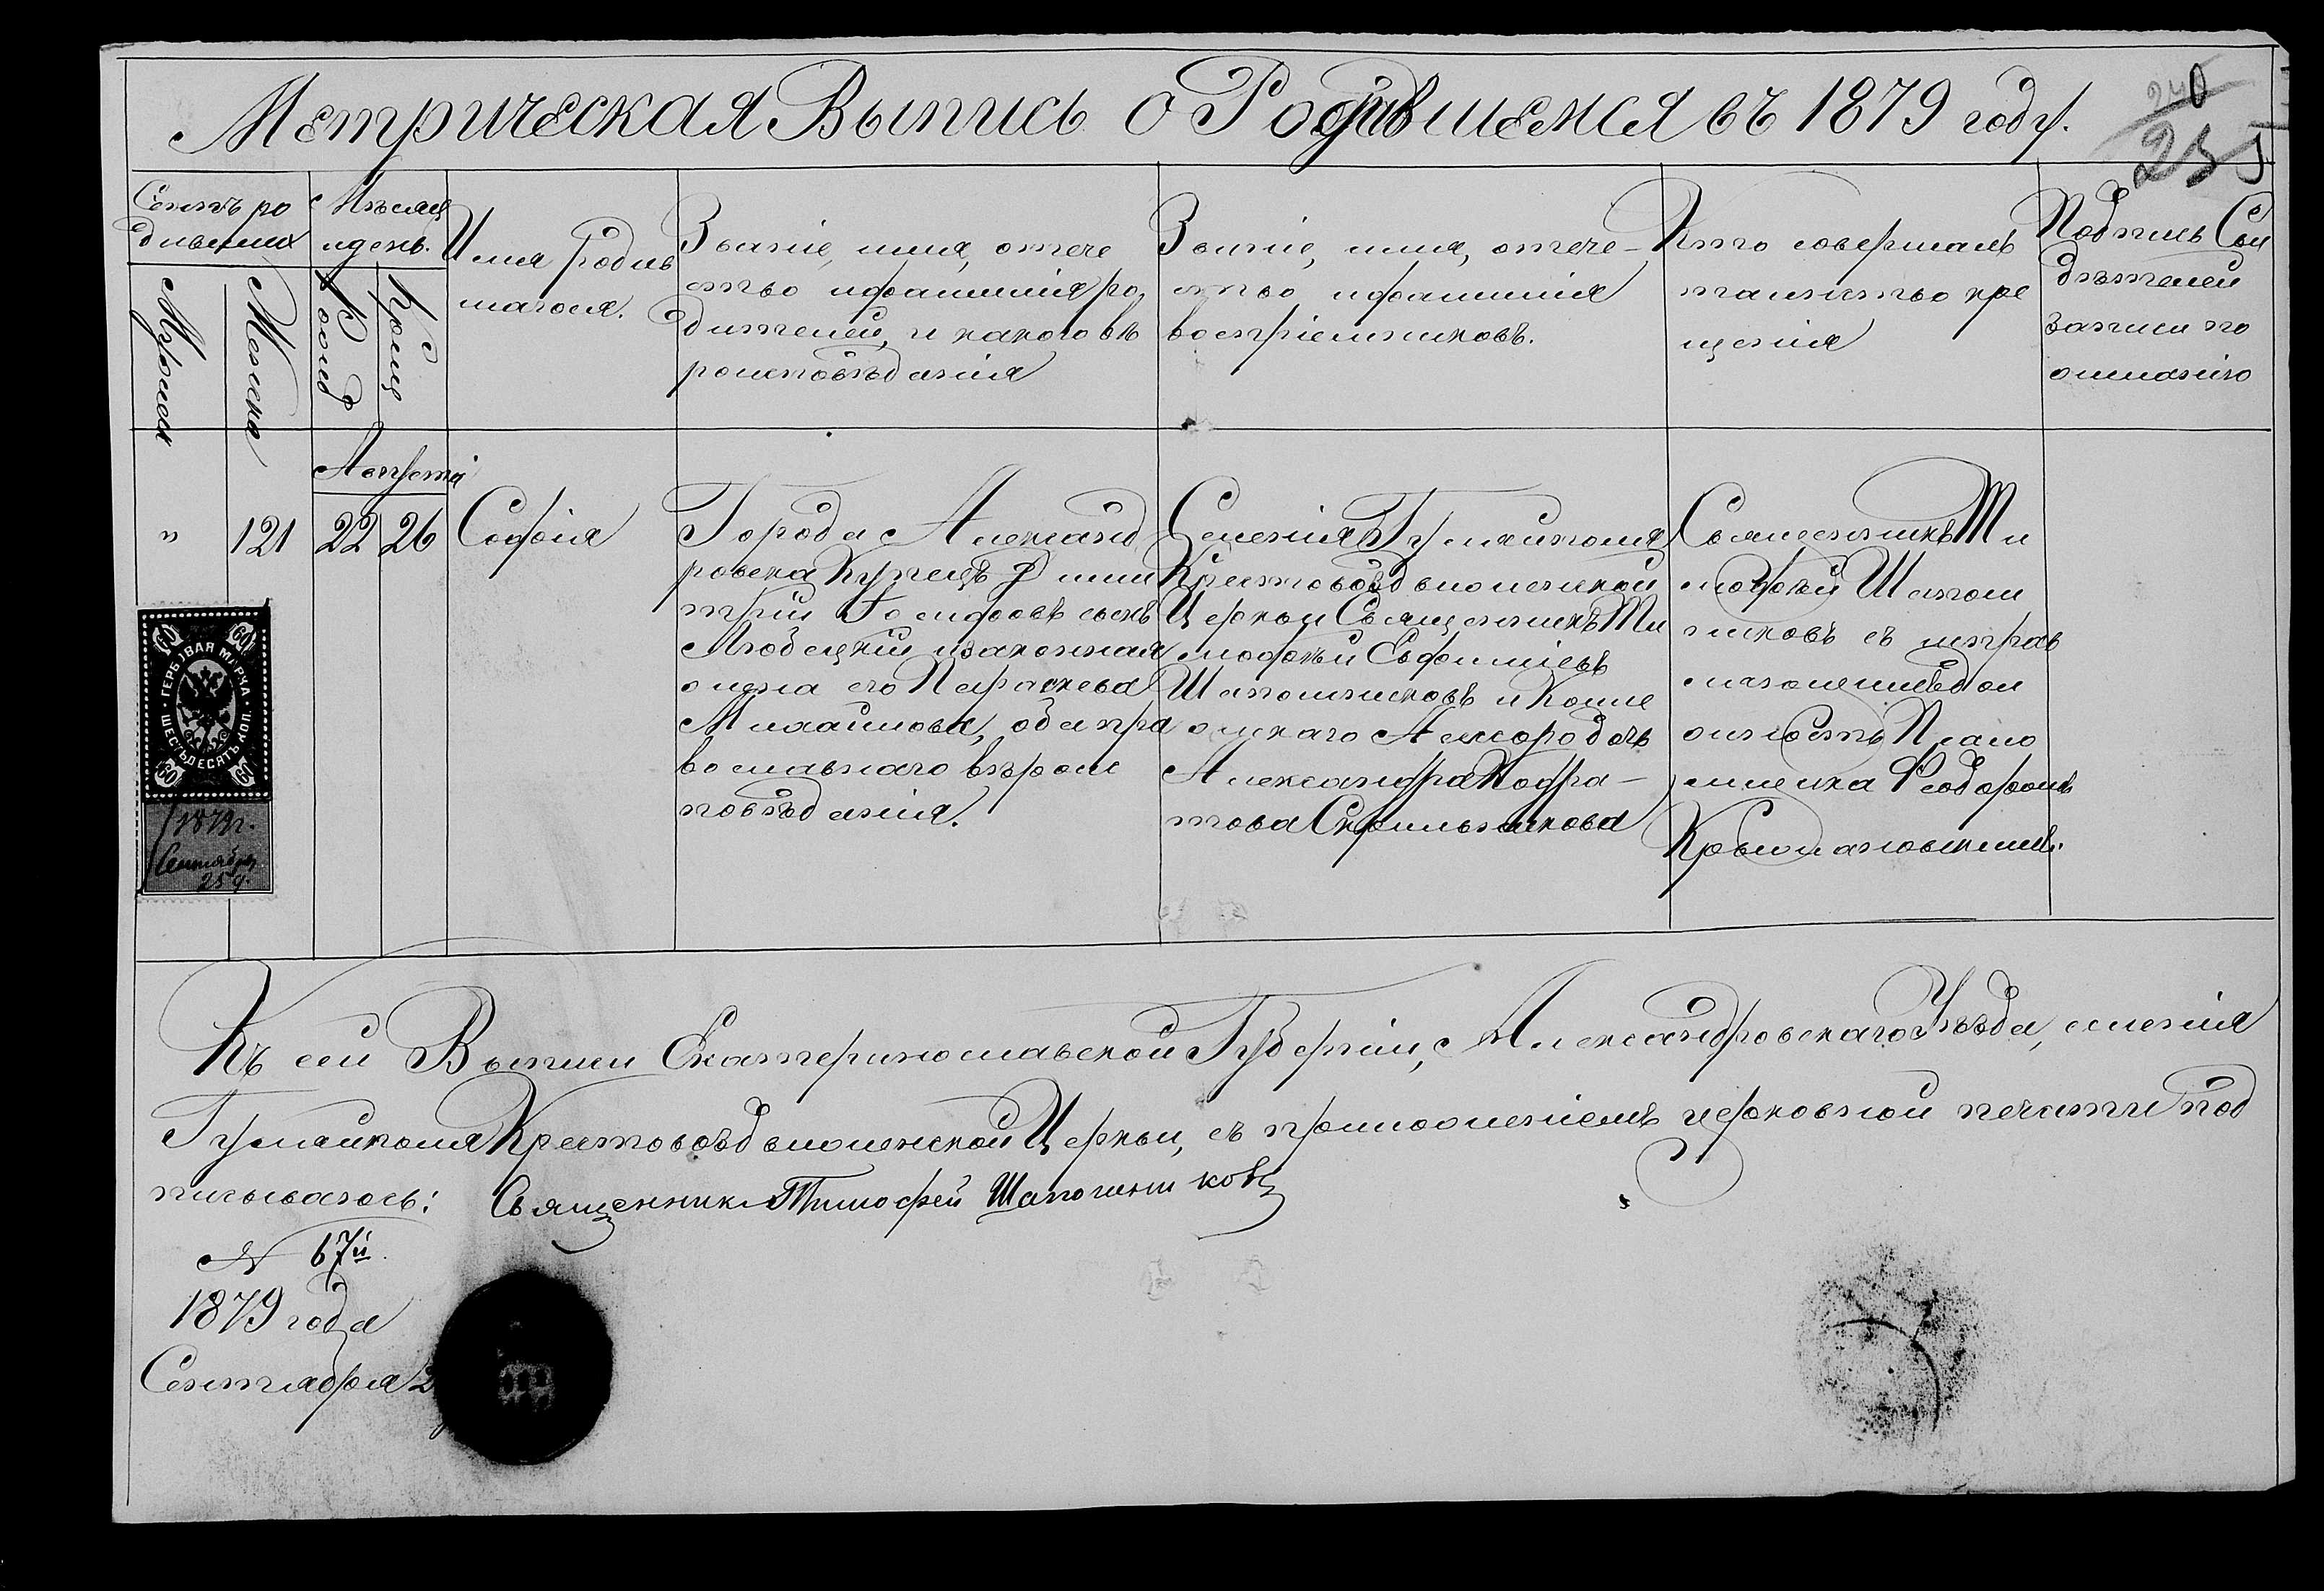 Метрическая Выпись о Родившемся въ 1879 году.
240
235
Счетъ ро
дившихъ
Мужеск
Женска
Мѣсяц
и день.
Рожд
Крещ
Имя родив
шагося.
Званіе, имя, отече
ство и фамилія ро
дителей, и какого вѣ
роисповѣданія
Званіе, имя, отече-
ство и фамилія
воспріемниковъ.
Кто совершалъ
таинство кре
щенія
Подпись Сви
дѣтелей
записи по
желанію
Августа
"
121
22
26
Софія
Города Александ
ровска Купецъ Дими
трій Іосифовъ сынъ
Любецкій и законная
жена его Параскева
Михайлова, оба пра
вославнаго вѣроис
повѣданія.
Селенія Гуляйполя
Крестовоздвиженской
Церкви Священникъ Ти
мофей Евфиміевъ
Шапошниковъ иКолле
жскаго Ассесора дочь
Александра Кодра-
това Скрыльникова
Священникъ Ти
мофей Шапош
никовъ съ исправ
ляющимъ дол
жность Псало
мщика Феодоромъ
ГЕРБОВАЯ МАРКА
ШЕСТЬДЕСЯТЪ КОП.
60
60
60
60
1879 г.
Сентября
25 д.
Къ сей Выписи Екатеринославской Губерніи, Александровскаго Уѣзда, селенія
Гуляйполя Крестовоздвиженской Церкви, съ приложеніемъ церковной печати под
писываюсь: Священник Тимофей Шапошниковъ
№ 67й
1879 года
Сентября 2